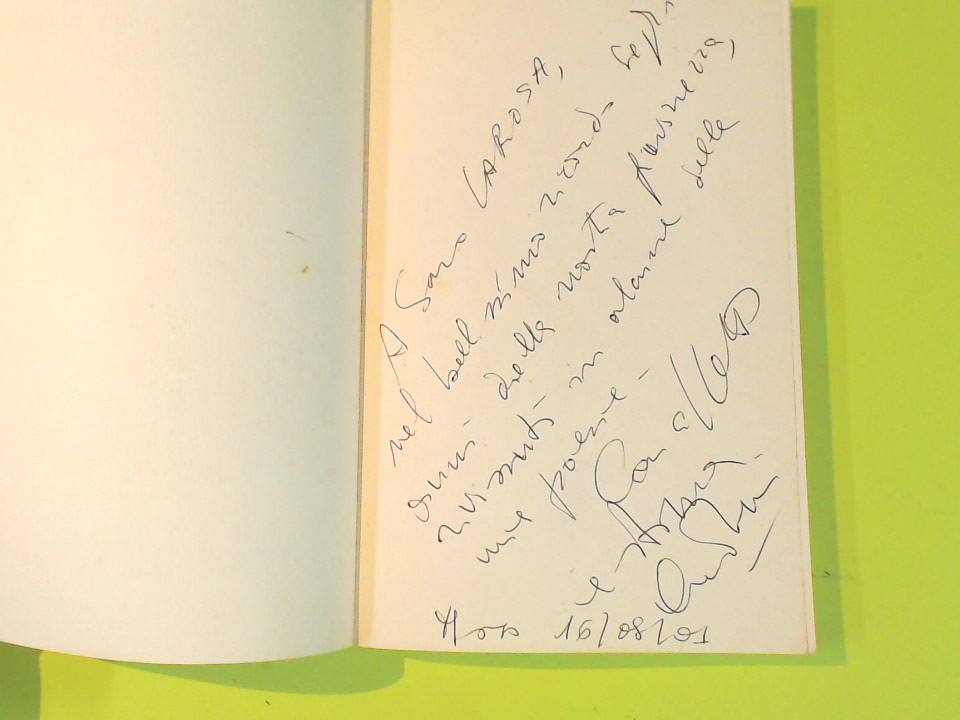 A Saro LAROSA,
nel bellissimo ricordo degli
anni della nostra giovinezza,
rivissuti in alcune delle
mie poesie -
Con affetto
e stima.
16/08/01